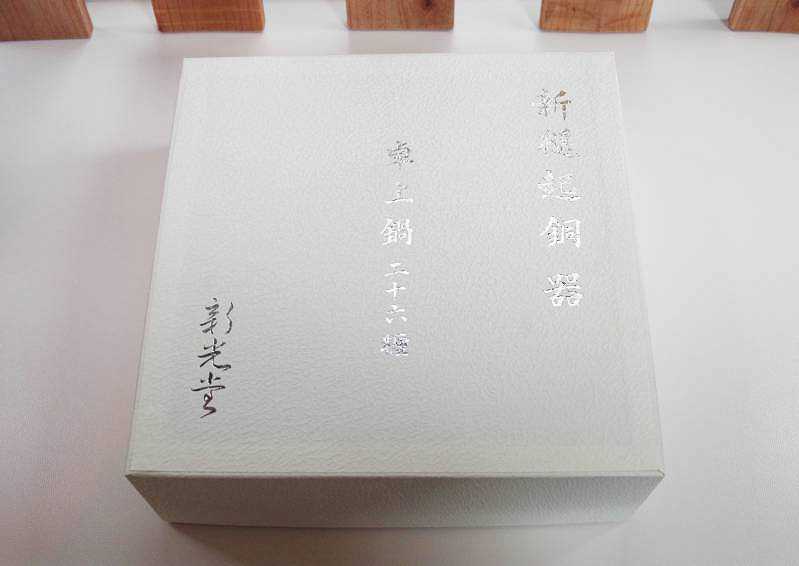 新鎚起銅器
卓上鍋 二十六糎
新光堂